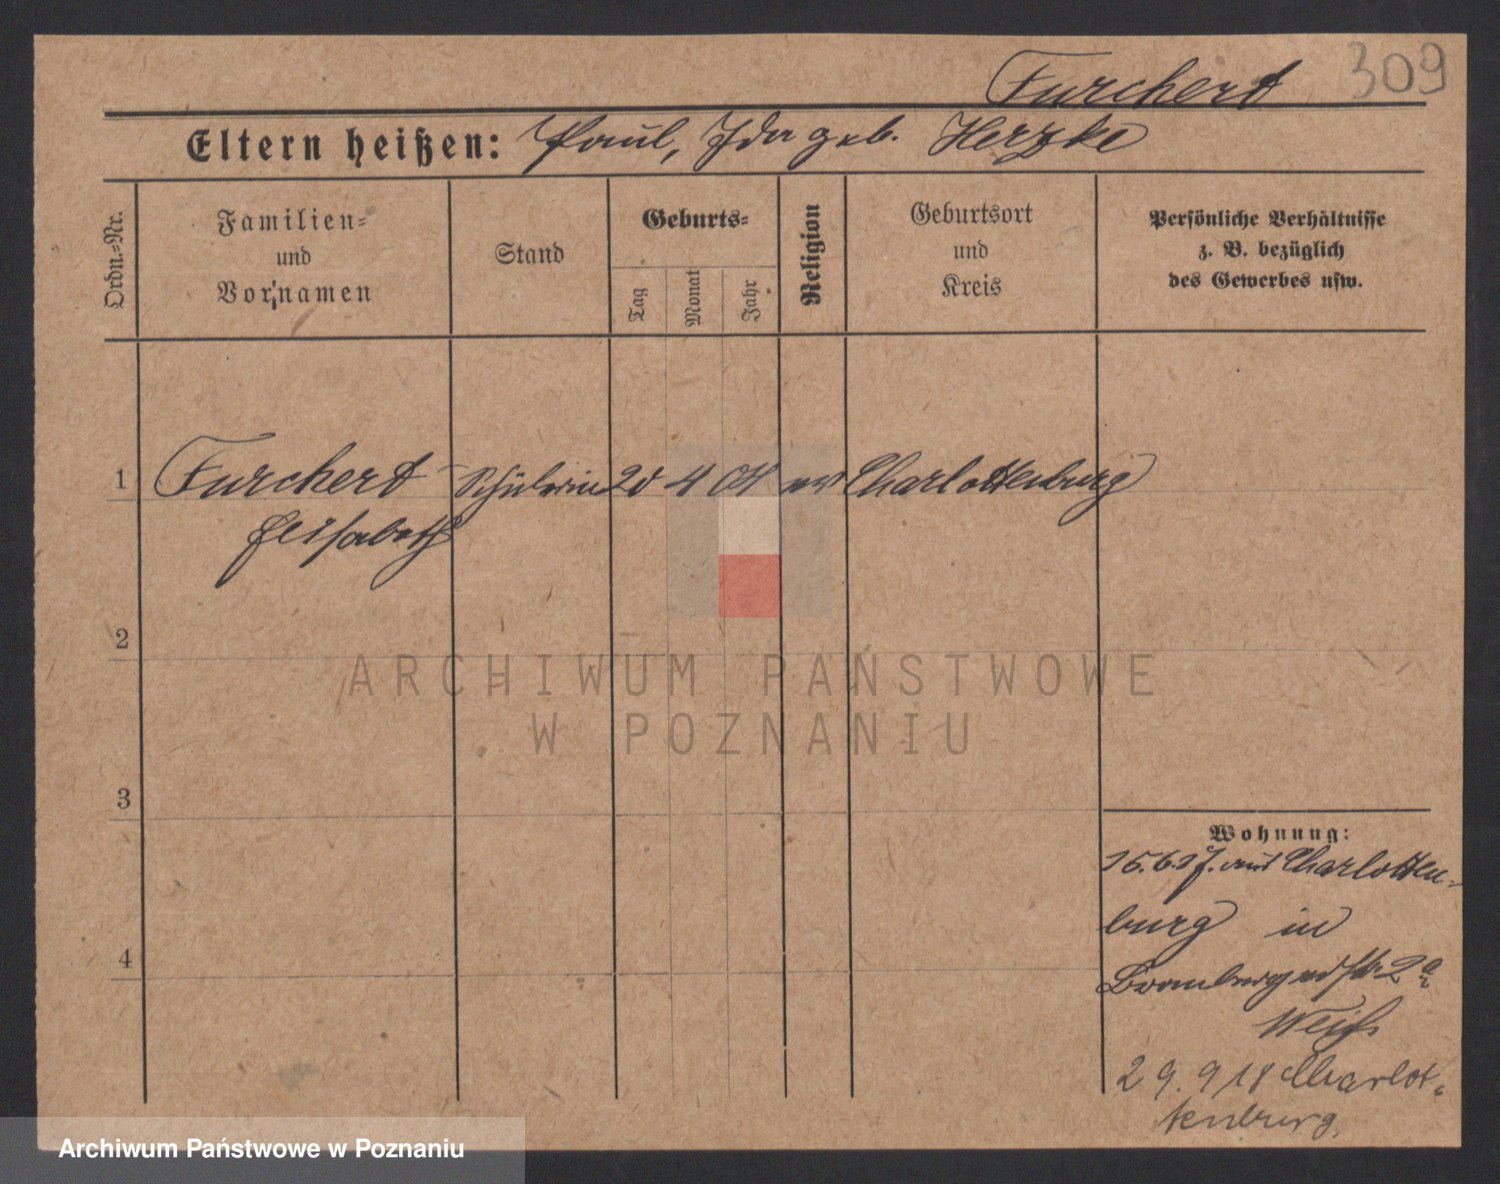 Furchert 309
Eltern heißen: Paul, Ida geb. Herzke
Ordn.=Nr.
Familien=
und
Vornamen
Stand
Geburts=
Tag
Monat
Jahr
Religion
Geburtsort
und
Kreis
Persönliche Verhältnisse
z. B. bezüglich
des Gewerbes usw.
1 Furchert Schülerin 20 4 04 ev Charlottenburg
Elisabeth
2
3
4
Wohnung:
15.6.17. aus Charlotten-
burg in
2a
Weiß
29.9 18 Charlot-
tenburg.
ARCHIWUM PAŃSTWOWE
W POZNANIU
Archiwum Państwowe w Poznaniu